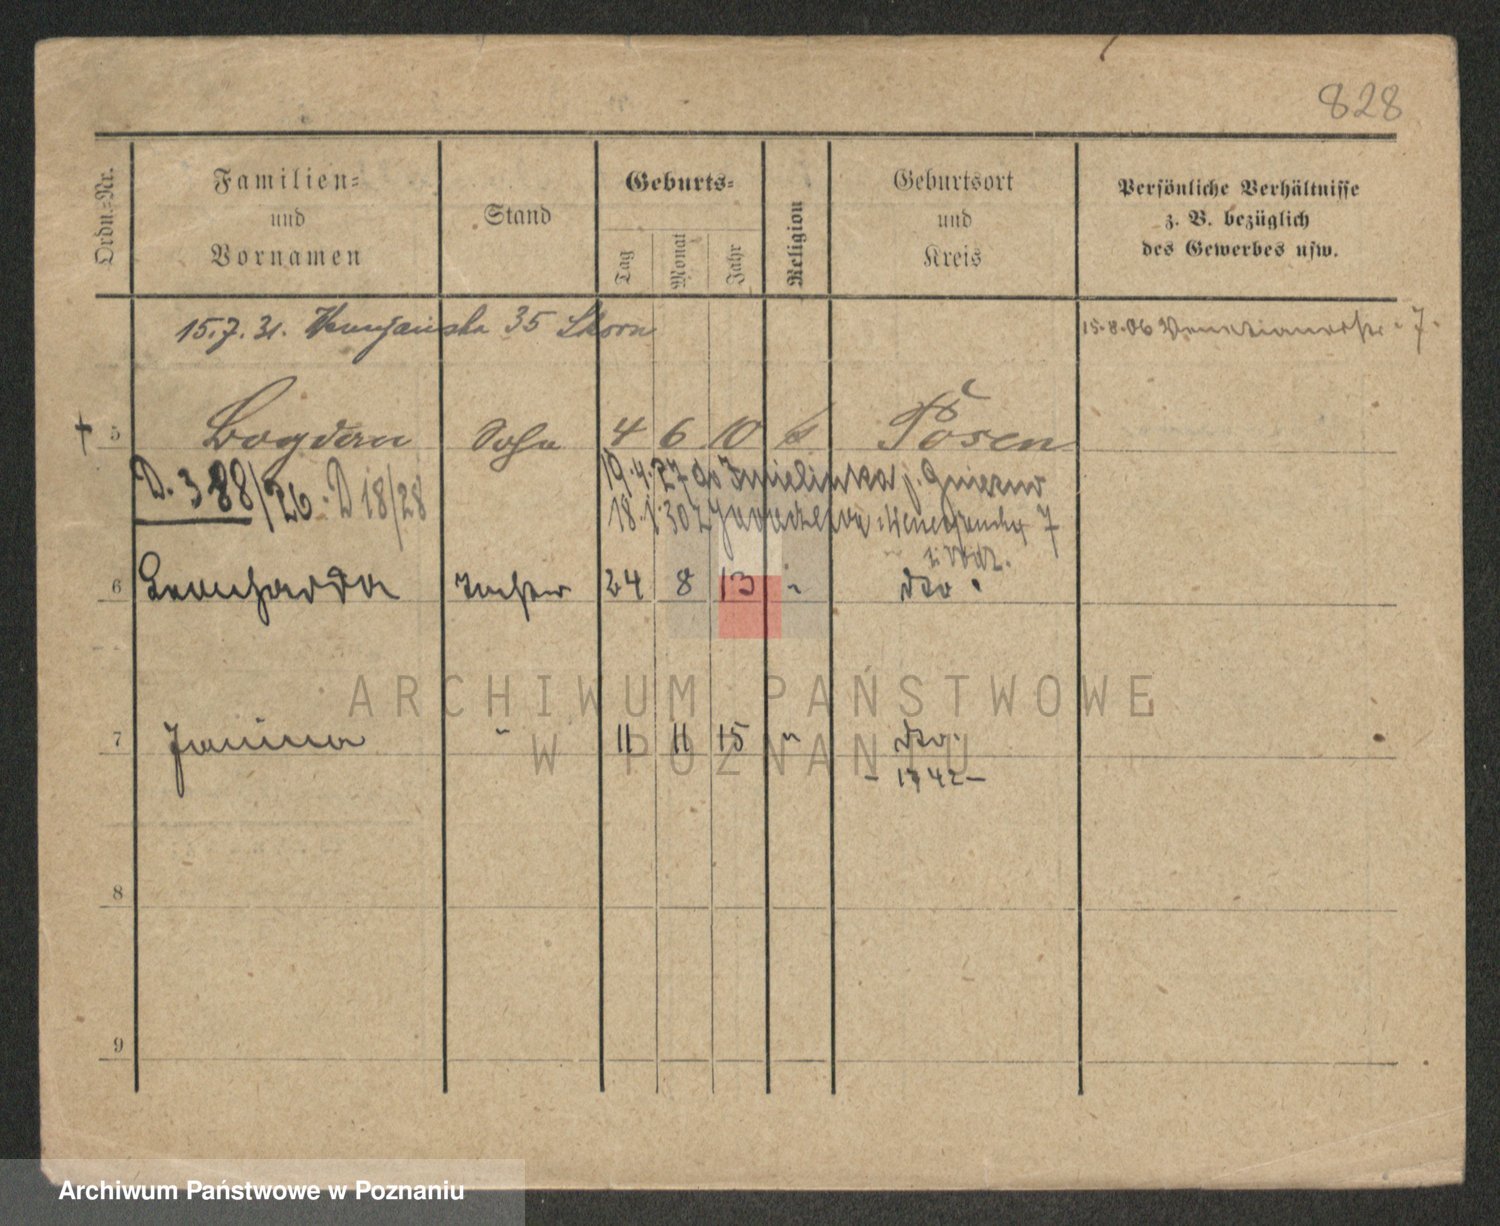 828
Ordn.-Nr.
Familien-
und
Vornamen
Stand
Geburts-
Tag
Monat
Jahr
Religion
Geburtsort
und
Kreis
Persönliche Verhältnisse
z. B. bezüglich
des Gewerbes usw.
15.7.31. 35
15.8.06 7.
5 Bogdan Sohn 4 6 10 k Posen
D. 388/26. D 18/28
19.4.27 do Imielinka p. Gniezno
18.1.30 z 7
6 Leonharda Tochter 24 8 13 " dto.
7 Janina " 11 11 15 " dto.
- 1742 -
8
9
ARCHIWUM PAŃSTWOWE
W POZNANIU
Archiwum Państwowe w Poznaniu